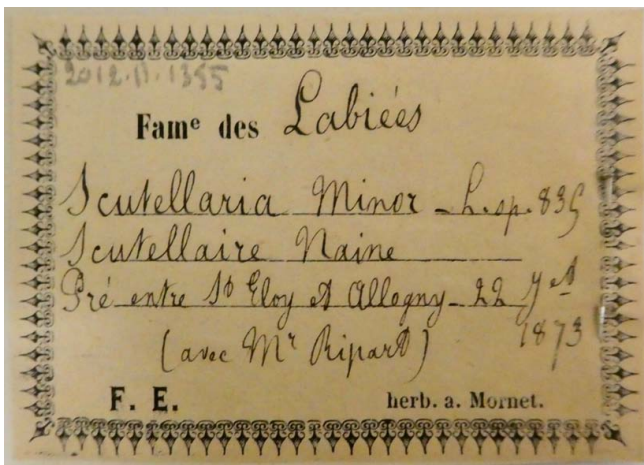 2012.11.1355
Fam^e des Labiées
Scutellaria Minor - L. sp. 835
Scutellaire Naine
Pré entre S^t Eloy et Allogny - 22 7^et
1873
(avec M^r Ripart)
F. E. herb. a. Mornet.